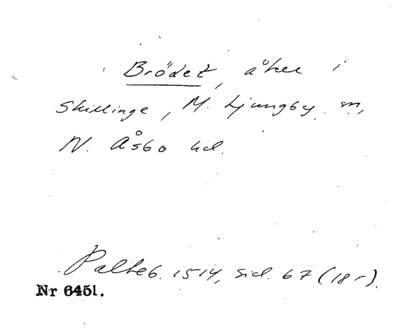 Brödet, åker i
Skillinge, M. Ljungby sn,
N. Åsbo hd.
Palteb. 1514, sid. 67 (18-).
Nr 6451.